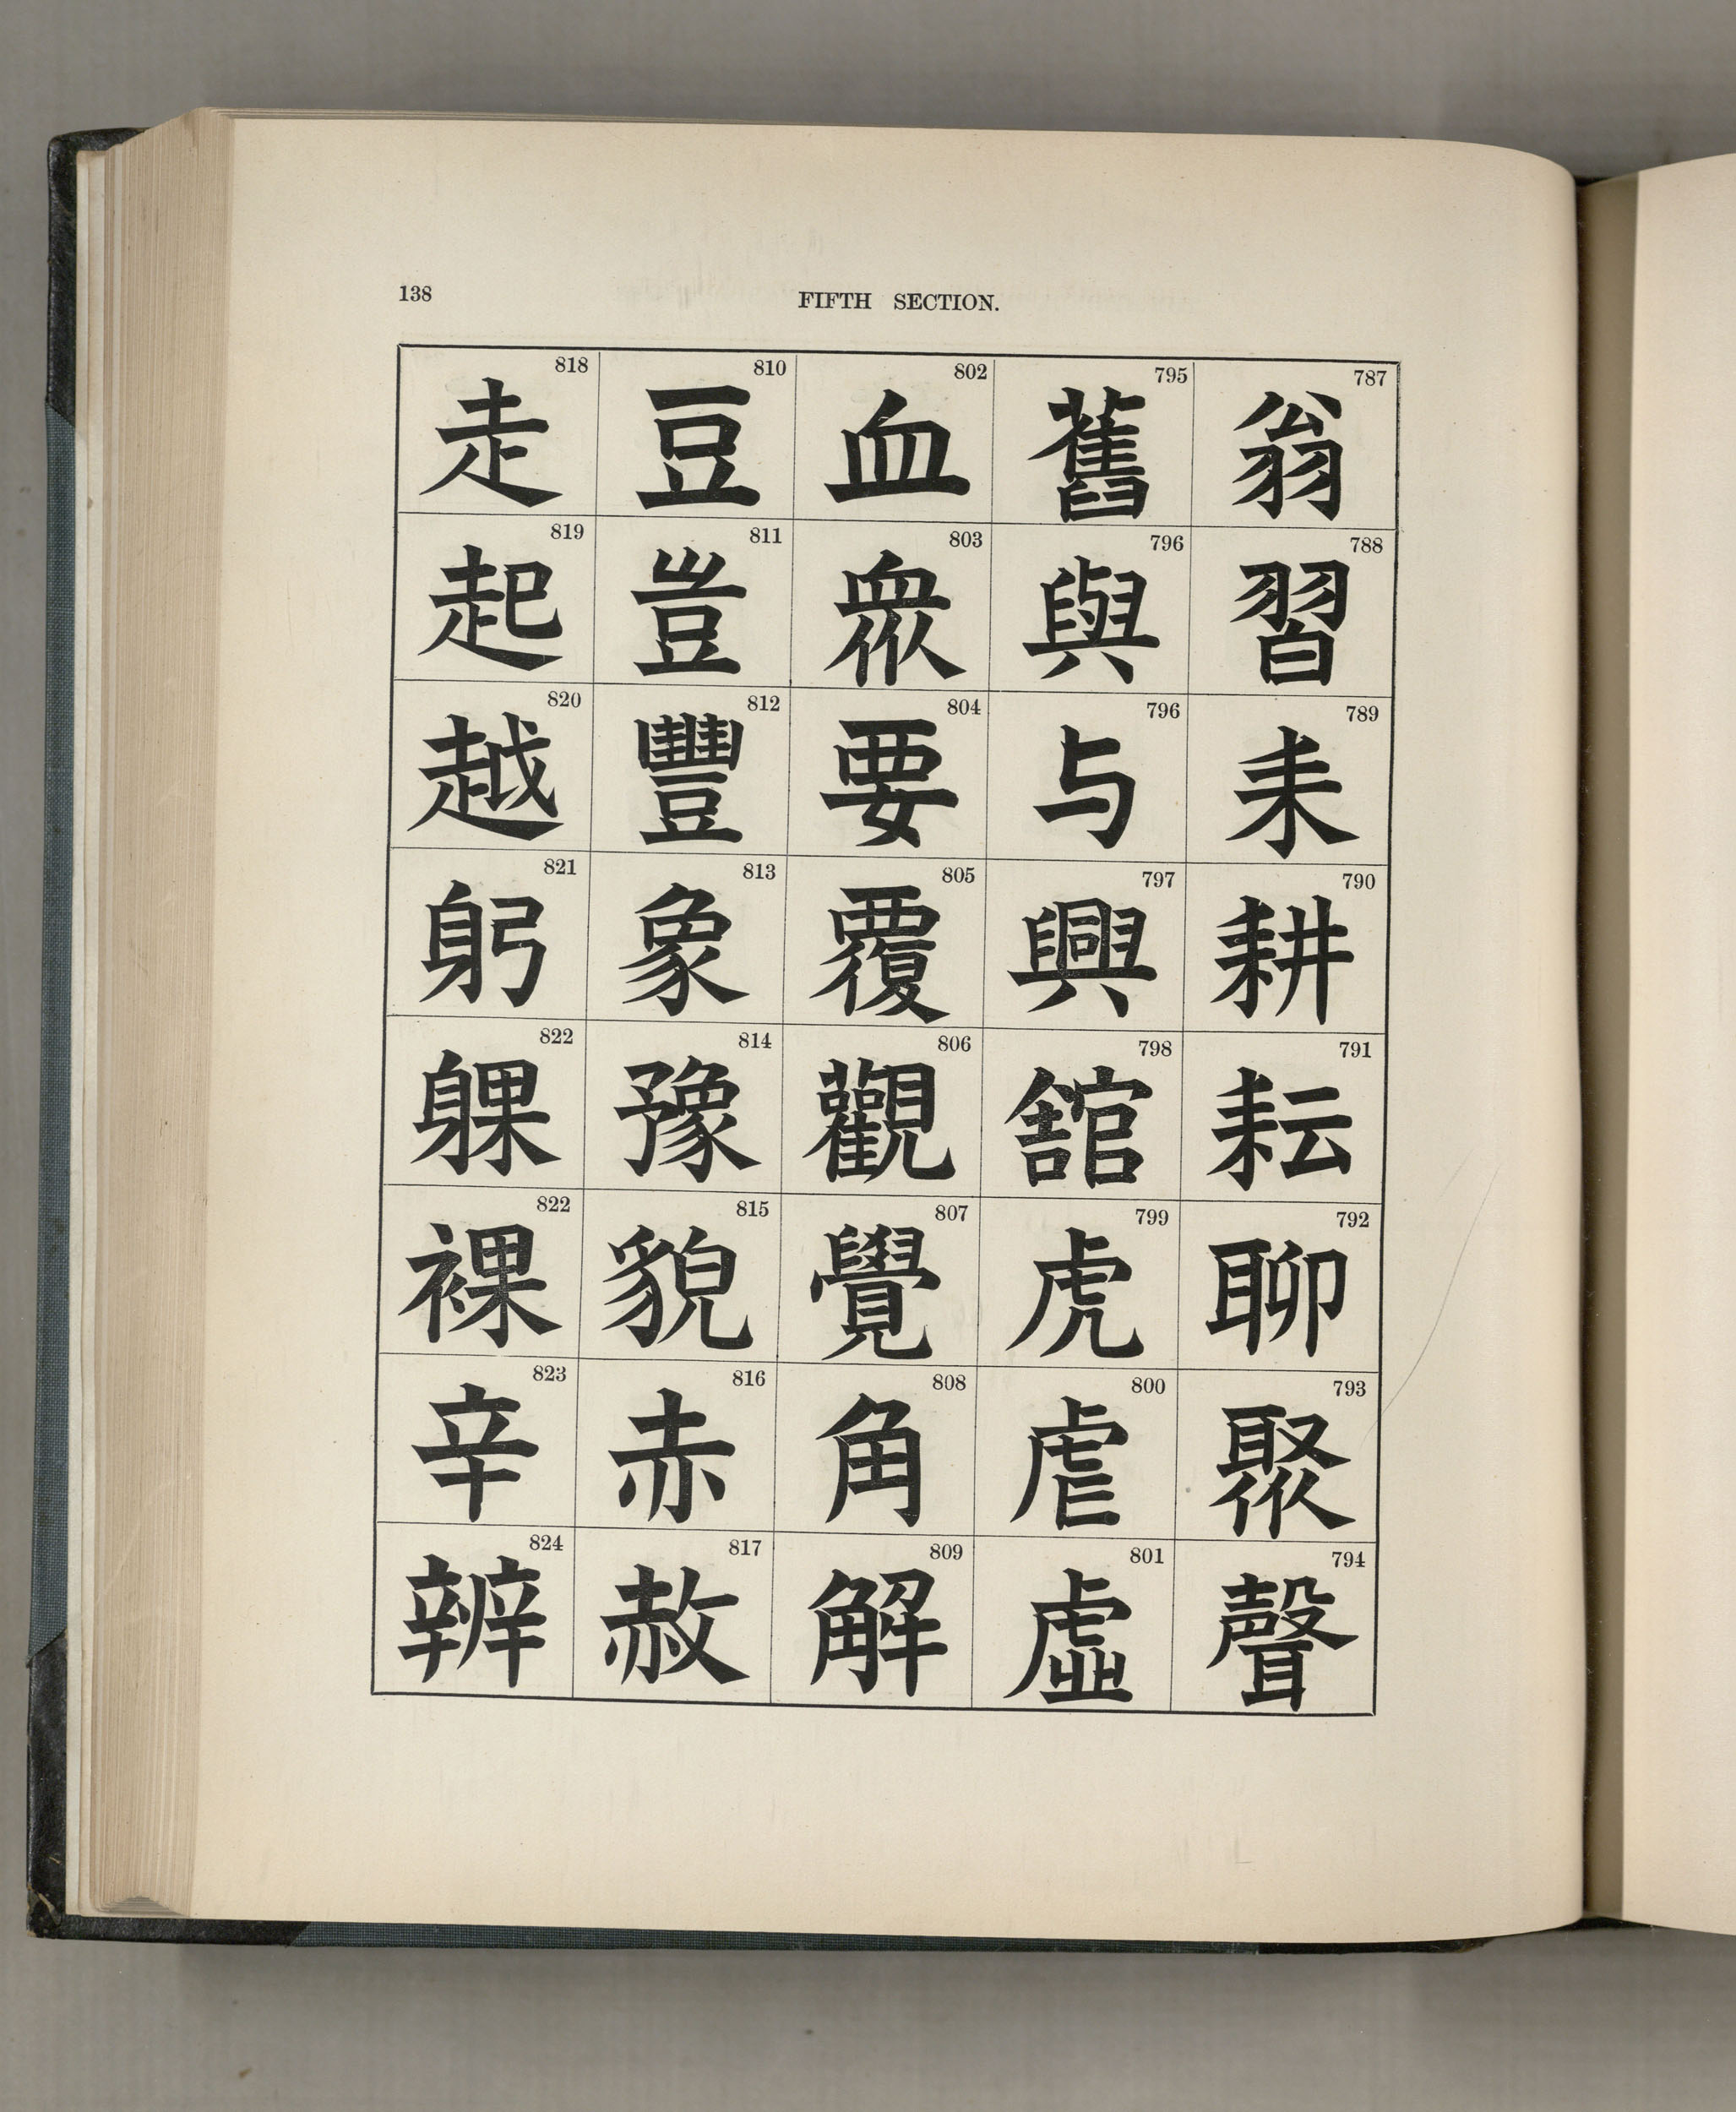 138
FIFTH SECTION.
787 翁
788 習
789 耒
790 耕
791 耘
792 聊
793 聚
794 聲
795 舊
796 與
796 与
797 興
798 舘
799 虎
800 虐
801 虛
802 血
803 衆
804 要
805 覆
806 觀
807 覺
808 角
809 解
810 豆
811 豈
812 豐
813 象
814 豫
815 貌
816 赤
817 赦
818 走
819 起
820 越
821 躬
822 躶
822 裸
823 辛
824 辨